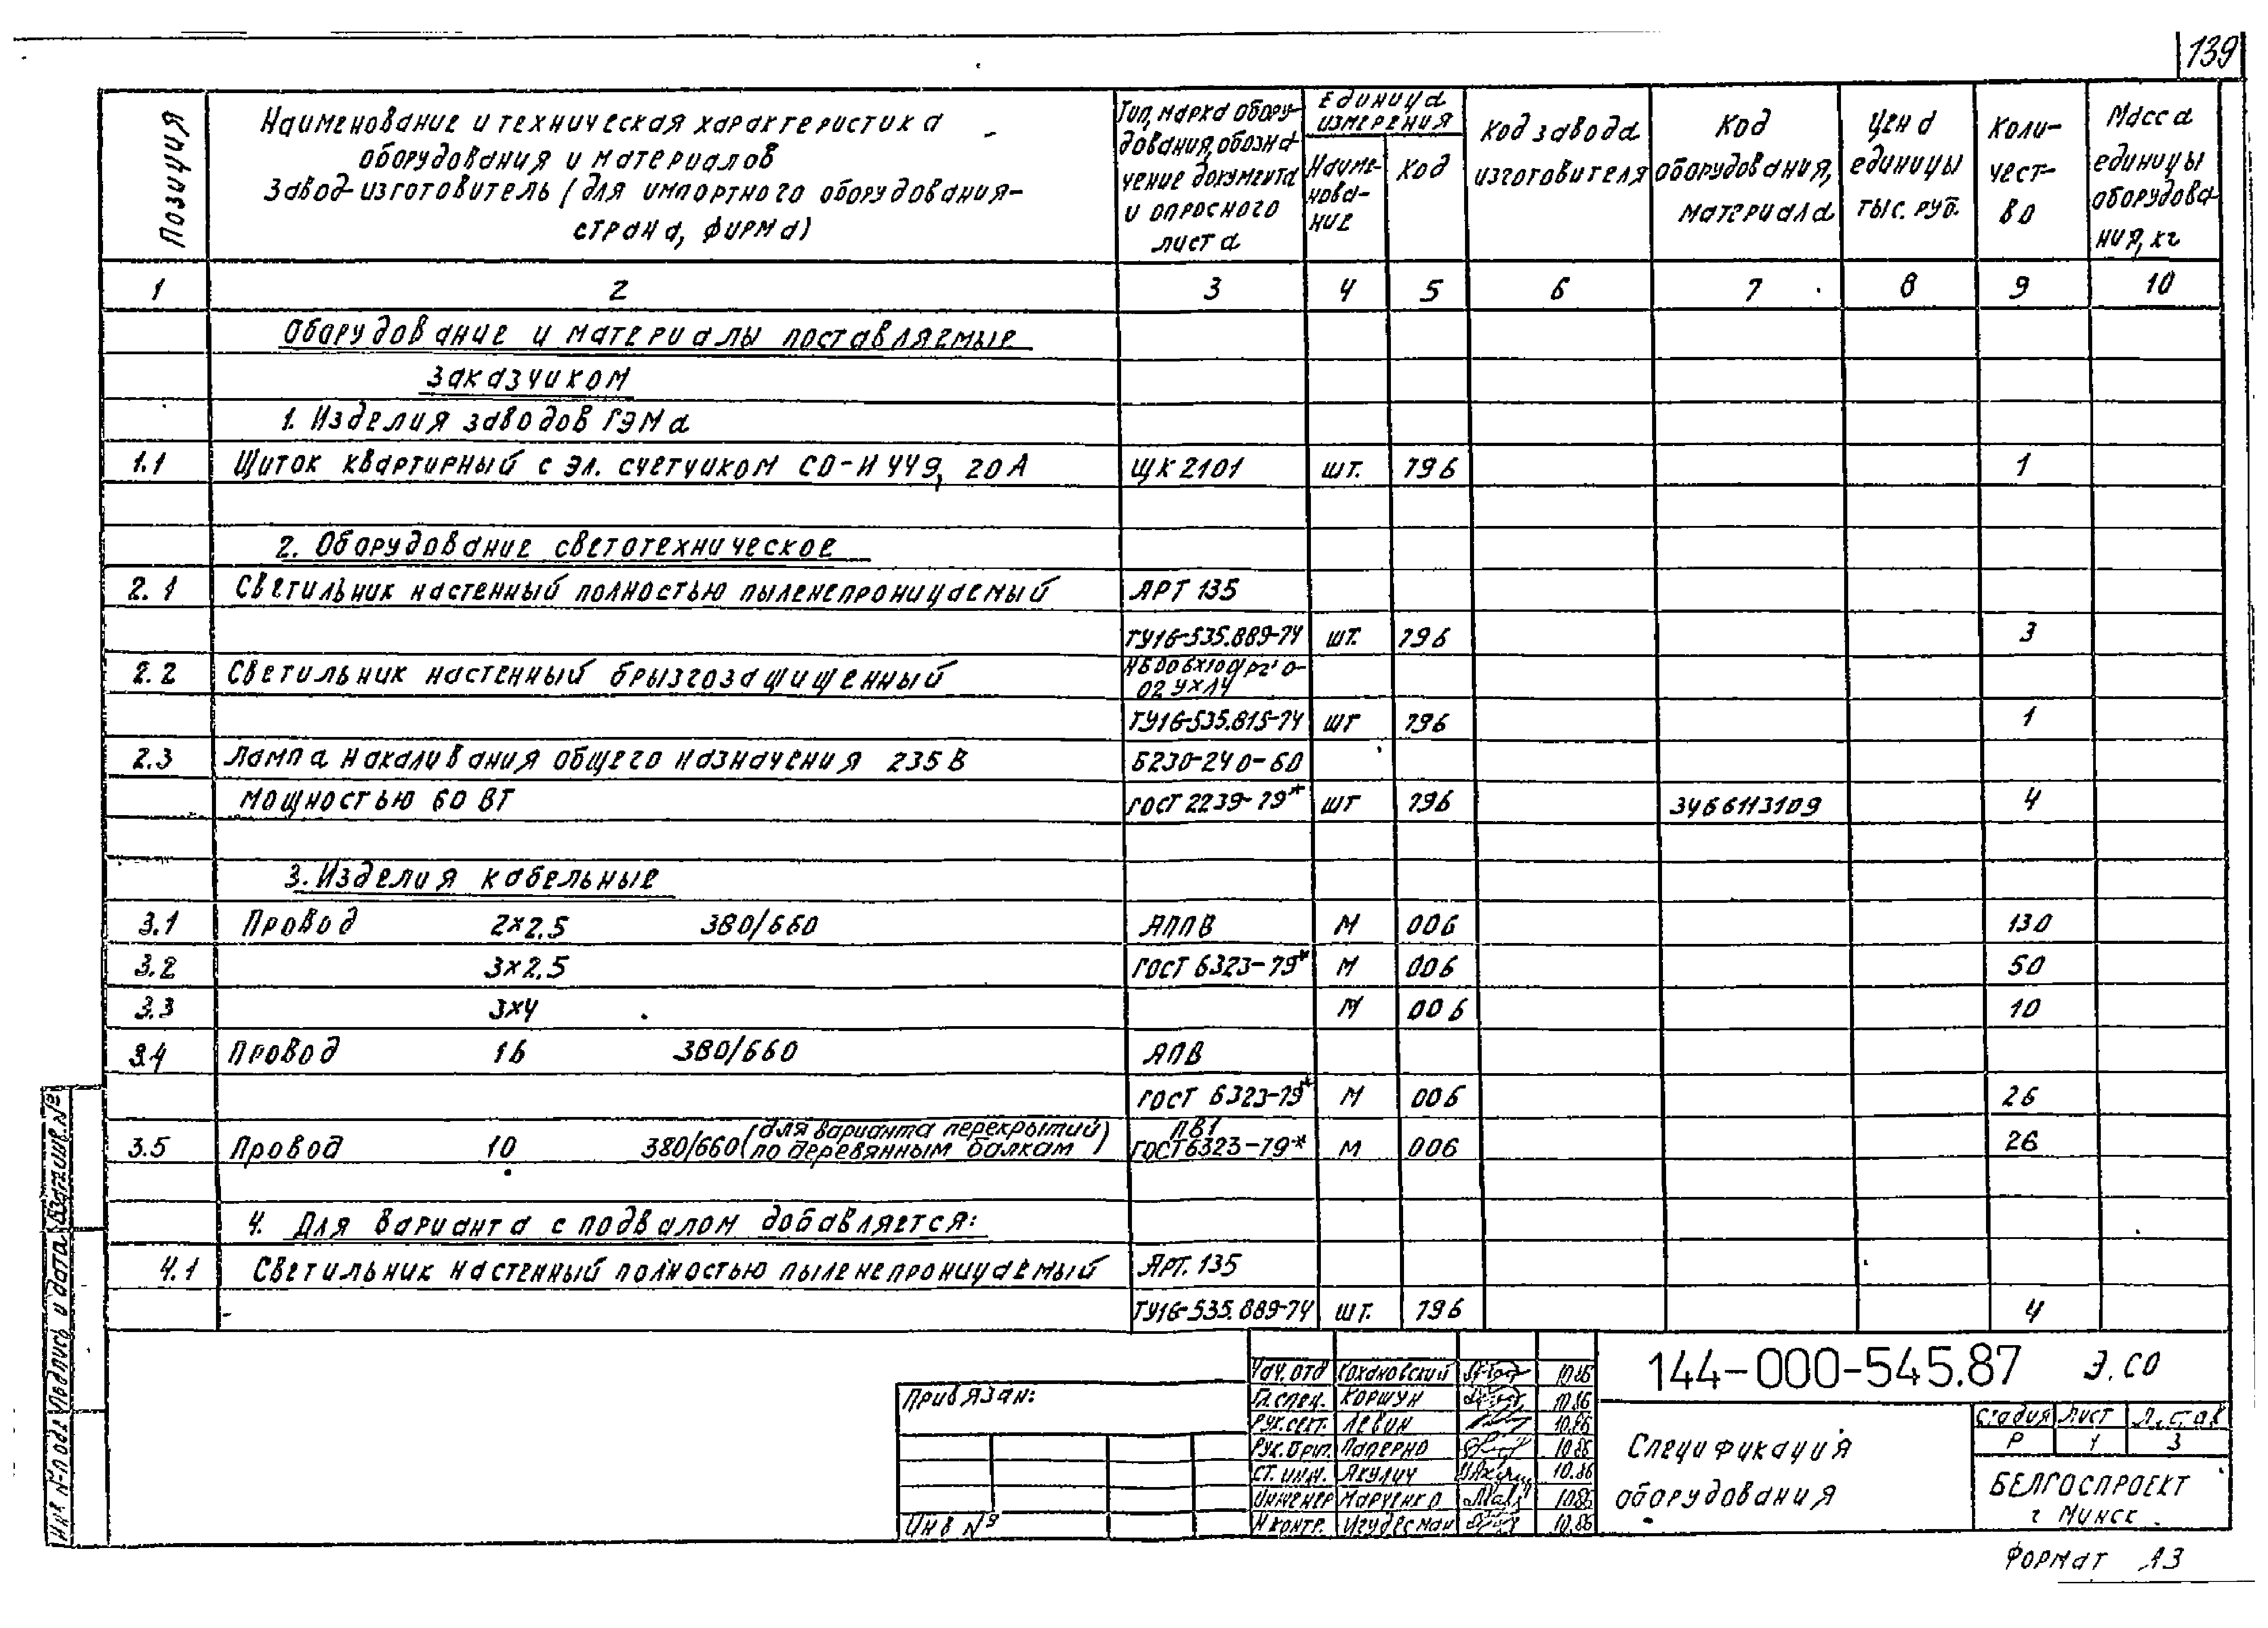 139
Позиция
Наименование и техническая характеристика
оборудования и материалов
Завод-изготовитель (для импортного оборудования-
страна, фирма)
Тип, марка обору-
дования, обозна-
чение документа
и опросного
листа
Единица
измерения
Наиме-
нова-
ние
Код
Код завода
изготовителя
Код
оборудования,
материала
Цена
единицы
тыс. руб.
Коли-
чест-
во
Масса
единицы
оборудова-
ния, кг
1 2 3 4 5 6 7 8 9 10
Оборудование и материалы поставляемые
заказчиком
1. Изделия заводов ГЭМа
1.1 Щиток квартирный с эл. счетчиком СО-И 449, 20А ЩК 2101 шт. 796 1
2. Оборудование светотехническое
2.1 Светильник настенный полностью пыленепроницаемый АРТ 135
ТУ16-535.889-74 шт. 796 3
2.2 Светильник настенный брызгозащищенный
02 УХЛ4
ТУ16-535.815-74 шт 796 1
2.3 Лампа накаливания общего назначения 235В Б230-240-60
мощностью 60 ВТ ГОСТ 2239-79* шт 796 3466113109 4
3. Изделия кабельные
3.1 Провод 2×2.5 380/660 АППВ М 006 130
3.2 3×2.5 ГОСТ 6323-79* М 006 50
3.3 3×4 М 006 10
3.4 Провод 16 380/660 АПВ
ГОСТ 6323-79* М 006 26
3.5 Провод 10 380/660 (для варианта перекрытий
по деревянным балкам) ПВ1
ГОСТ6323-79* М 006 26
4. Для варианта с подвалом добавляется:
4.1 Светильник настенный полностью пыленепроницаемый АРТ. 135
ТУ16-535.889-74 шт. 796 4
Взам.инв.№
Подпись и дата
Инв №подл
Привязан:
Инв №
Нач. отд Кохановский 10.86
Гл. спец. Коршун 10.86
Рук. сект. Левин 10.86
Рук. бриг. Паперно 10.86
Ст. инж. Якулич 10.86
Инженер Марченко 10.86
Н контр. Игудесман 10.86
144-000-545.87 Э.СО
Спецификация
оборудования
Стадия Лист Листов
Р 1 3
БЕЛГОСПРОЕКТ
г Минск
Формат А3